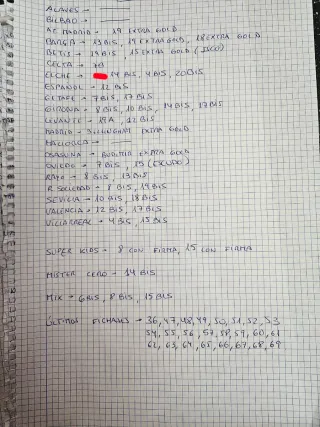 ALAVES →
BILBAO →
AT. MADRID → 19 EXTRA GOLD
BARÇA → 13 BIS, 19 EXTRA GOLD, 18 EXTRA GOLD
BETIS → 19 BIS, 15 EXTRA GOLD (ISCO)
CELTA → 7B
ELCHE → 14 BIS, 4 BIS, 20 BIS
ESPANOL → 12 BIS
GETAFE → 7 BIS, 17 BIS
GIRONA → 8 BIS, 10 BIS, 14 BIS, 17 BIS
LEVANTE → 17A, 12 BIS
MADRID → BELLINGHAM EXTRA GOLD
MALLORCA →
OSASUNA → BUDIMIR EXTRA GOLD
OVIEDO → 7 BIS, 19 (ESCUDO)
RAYO → 8 BIS, 13 BIS
R. SOCIEDAD → 8 BIS, 19 BIS
SEVILLA → 10 BIS, 18 BIS
VALENCIA → 12 BIS, 17 BIS
VILLARREAL → 4 BIS, 15 BIS
SUPER KIDS → 8 CON FIRMA, 15 CON FIRMA
MISTER CERO → 14 BIS
MIX → 6 BIS, 8 BIS, 15 BIS
ÚLTIMOS FICHAJES → 36, 47, 48, 49, 50, 51, 52, 53
54, 55, 56, 57, 58, 59, 60, 61
62, 63, 64, 65, 66, 67, 68, 69